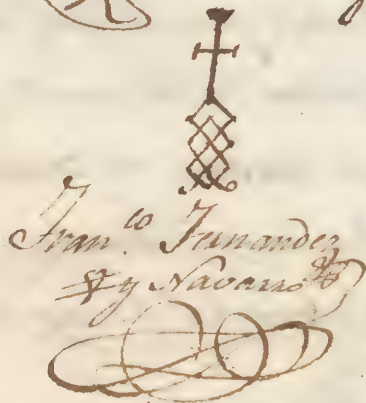 Fran.co Fernandez
y Navarro